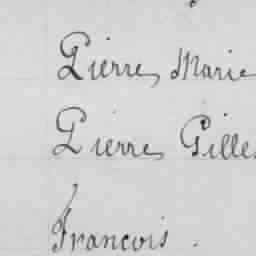 Pierre, Marie
Pierre, Gilles
Francois .